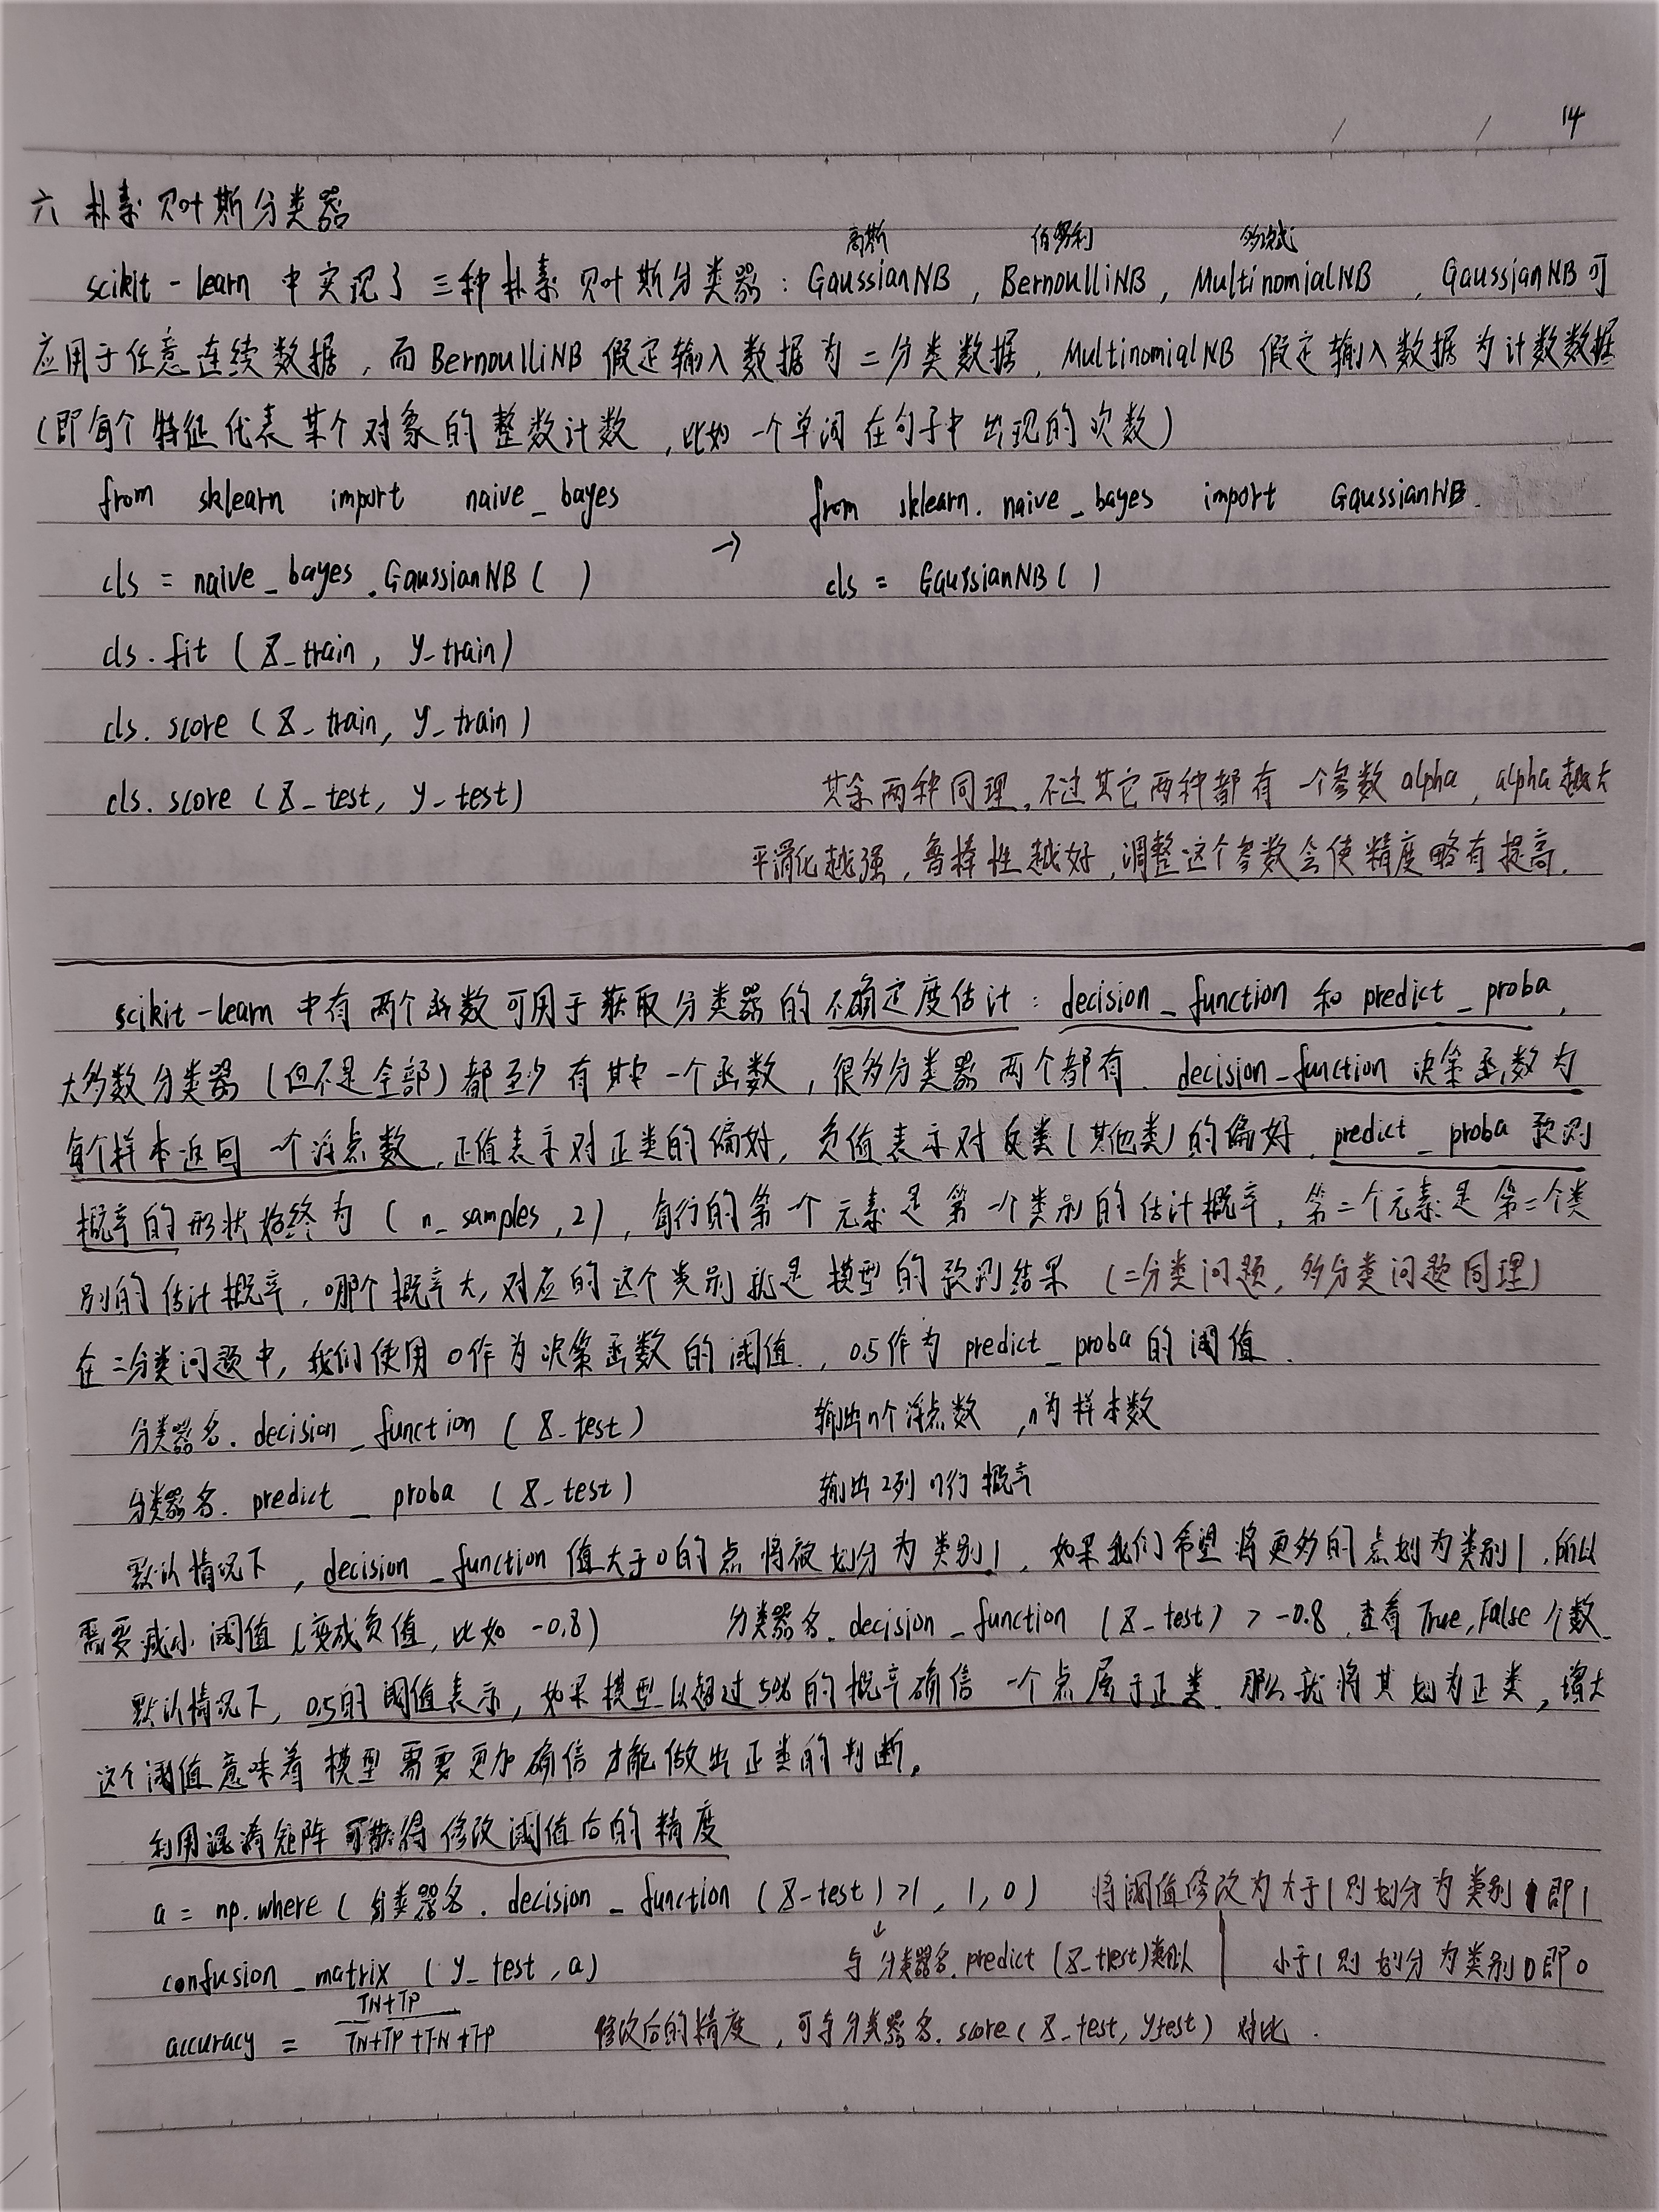 14
六 朴素贝叶斯分类器
高斯 伯努利 多项式
scikit-learn 中实现了三种朴素贝叶斯分类器：GaussianNB，BernoulliNB，MultinomialNB ，GaussianNB可
应用于任意连续数据，而BernoulliNB 假定输入数据为二分类数据，MultinomialNB 假定输入数据为计数数据
（即每个特征代表某个对象的整数计数，比如一个单词在句子中出现的次数）
from sklearn import naive_bayes from sklearn. naive_bayes import GaussianNB.
cls = naive_bayes.GaussianNB( ) → cls = GaussianNB( )
cls.fit (X_train, y_train)
cls. score (X_train, y_train)
cls. score (X_test, y_test) 其余两种同理，不过其它两种都有一个参数alpha，alpha越大
平滑化越强，鲁棒性越好，调整这个参数会使精度略有提高．
scikit-learn 中有两个函数可用于获取分类器的不确定度估计：decision_function 和 predict_proba，
大多数分类器（但不是全部）都至少有其中一个函数，很多分类器两个都有．decision_function 决策函数为
每个样本返回一个浮点数，正值表示对正类的偏好，负值表示对反类（其他类）的偏好．predict_proba 预测
概率的形状始终为 (n_samples,2)，每行的第一个元素是第一个类别的估计概率，第二个元素是第二个类
别的估计概率，哪个概率大，对应的这个类别就是模型的预测结果（二分类问题，多分类问题同理）
在二分类问题中，我们使用0作为决策函数的阈值．，0.5作为 predict_proba的阈值．
分类器名. decision_function (X_test) 输出n个浮点数 ，n为样本数
分类器名. predict_proba (X_test) 输出2列n行概率
默认情况下，decision_function 值大于0的点将被划分为类别1，如果我们希望将更多的点划为类别1，所以
需要减小阈值（变成负值，比如 -0.8） 分类器名. decision_function (X_test) > -0.8，查看True,False个数．
默认情况下，0.5的阈值表示，如果模型以超过50%的概率确信一个点属于正类．那么就将其划为正类，增大
这个阈值意味着模型需要更加确信才能做出正类的判断。
利用混淆矩阵可获得修改阈值后的精度
a = np.where (分类器名. decision_function (X_test) >1, 1, 0) 将阈值修改为大于1则划分为类别1即1
confusion_matrix (y_test, a) ↓与分类器名.predict (X_test)类似 | 小于1则划分为类别0即0
accuracy = TN+TP / TN+TP+FN+FP 修改后的精度，可与分类器名. score(X_test, ytest) 对比．